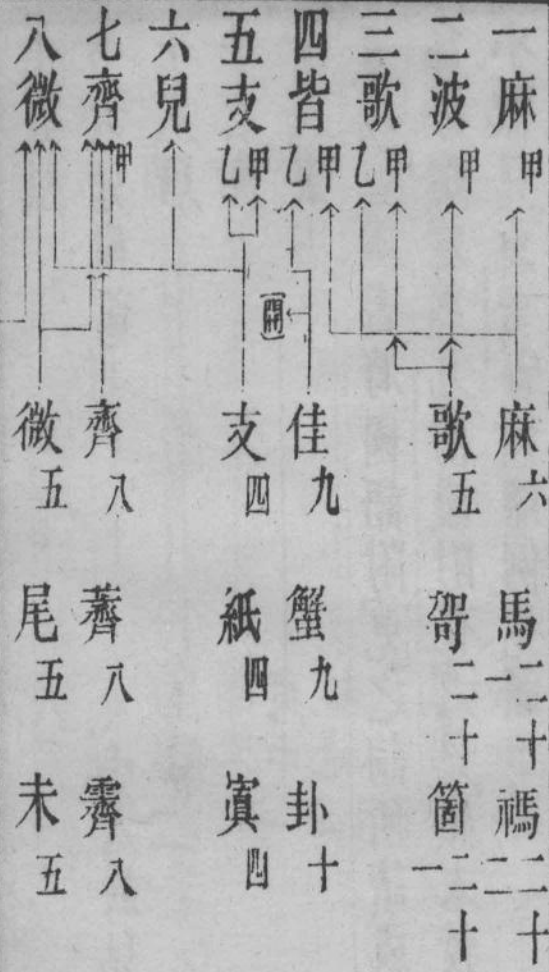 一麻 甲
二波 甲
三歌 甲 乙
四皆 甲 乙
五支 甲 乙
六兒
七齊 甲
八微
開
麻六 馬二十一 禡二十二
歌五 哿二十 箇二十一
佳九 蟹九 卦十
支四 紙四 寘四
齊八 薺八 霽八
微五 尾五 未五